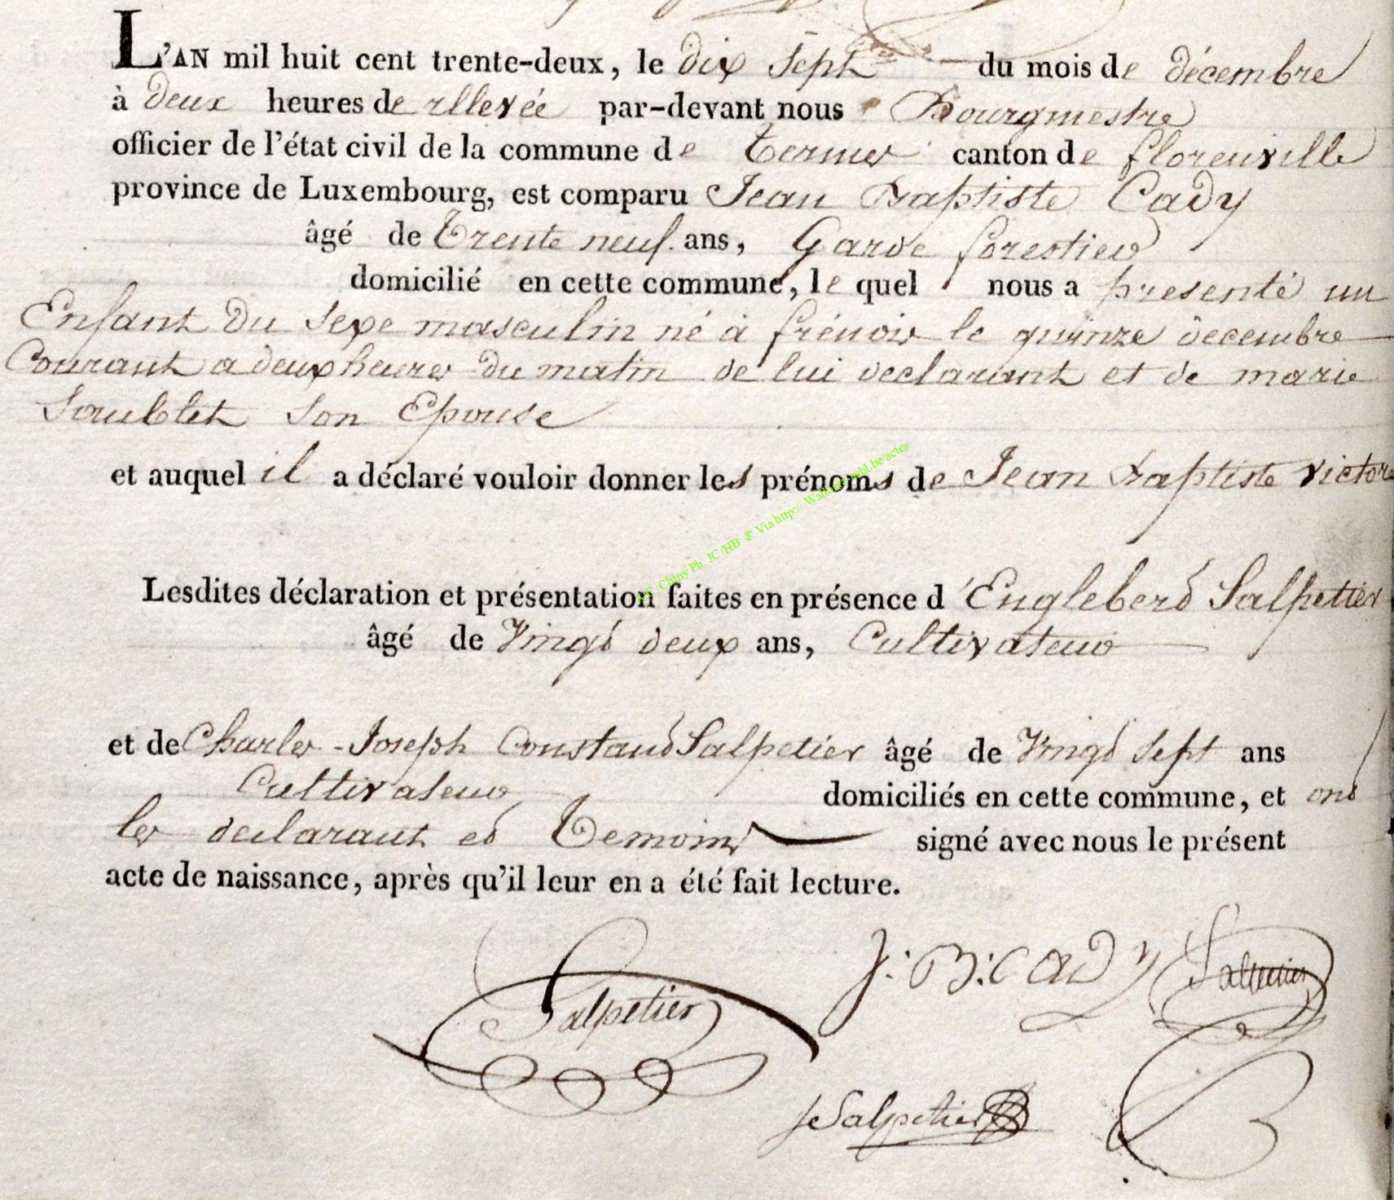 L'AN mil huit cent trente-deux, le dix sept du mois de décembre
à deux heures de rllevée par-devant nous Bourgmestre
officier de l'état civil de la commune de termes canton de florenville
province de Luxembourg, est comparu Jean Baptiste Cady
âgé de Trente neuf ans, Garde forestier
domicilié en cette commune, le quel nous a presenté un
Enfant du sexe masculin né à frénois le quinze decembre
Courant a deux heures du matin de lui declarant et de marie
Soublet son Epouse
et auquel il a déclaré vouloir donner les prénoms de Jean Baptiste victor
Lesdites déclaration et présentation faites en présence d'Engleberd Salpetier
âgé de Vingd deux ans, Cultivateur
et de Charles-Joseph Constand Salpetier âgé de Vingd Sept ans
Cultivateur domiciliés en cette commune, et ond
les declarant ed Temoins signé avec nous le présent
acte de naissance, après qu'il leur en a été fait lecture.
Salpetier J:B:CADY Salpetier
Salpetier